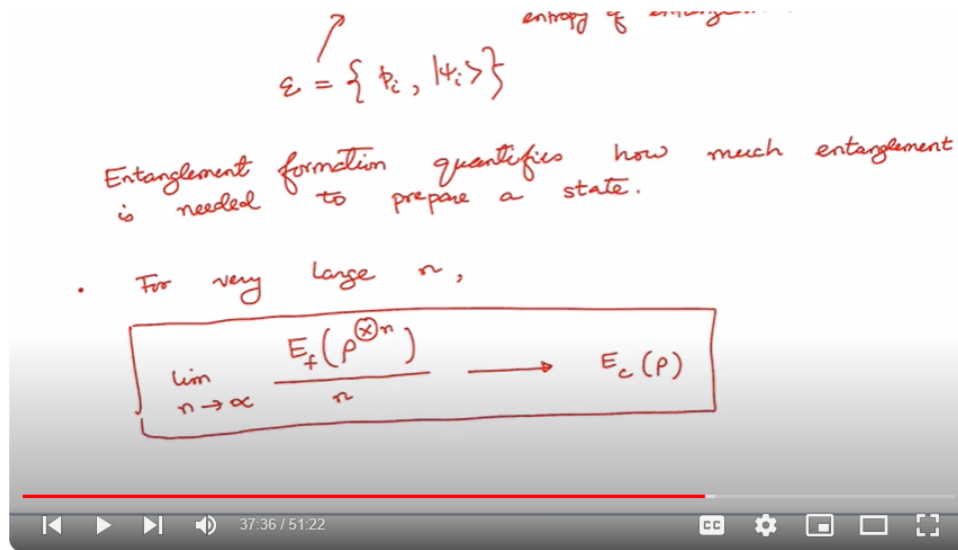 entropy of
ε = { pᵢ, |ψᵢ> }
Entanglement formation quantifies how much entanglement
is needed to prepare a state.
. For very large n,
lim n→∝ E_f(ρ^⊗n) / n ⟶ E_c(ρ)
37:36 / 51:22
CC